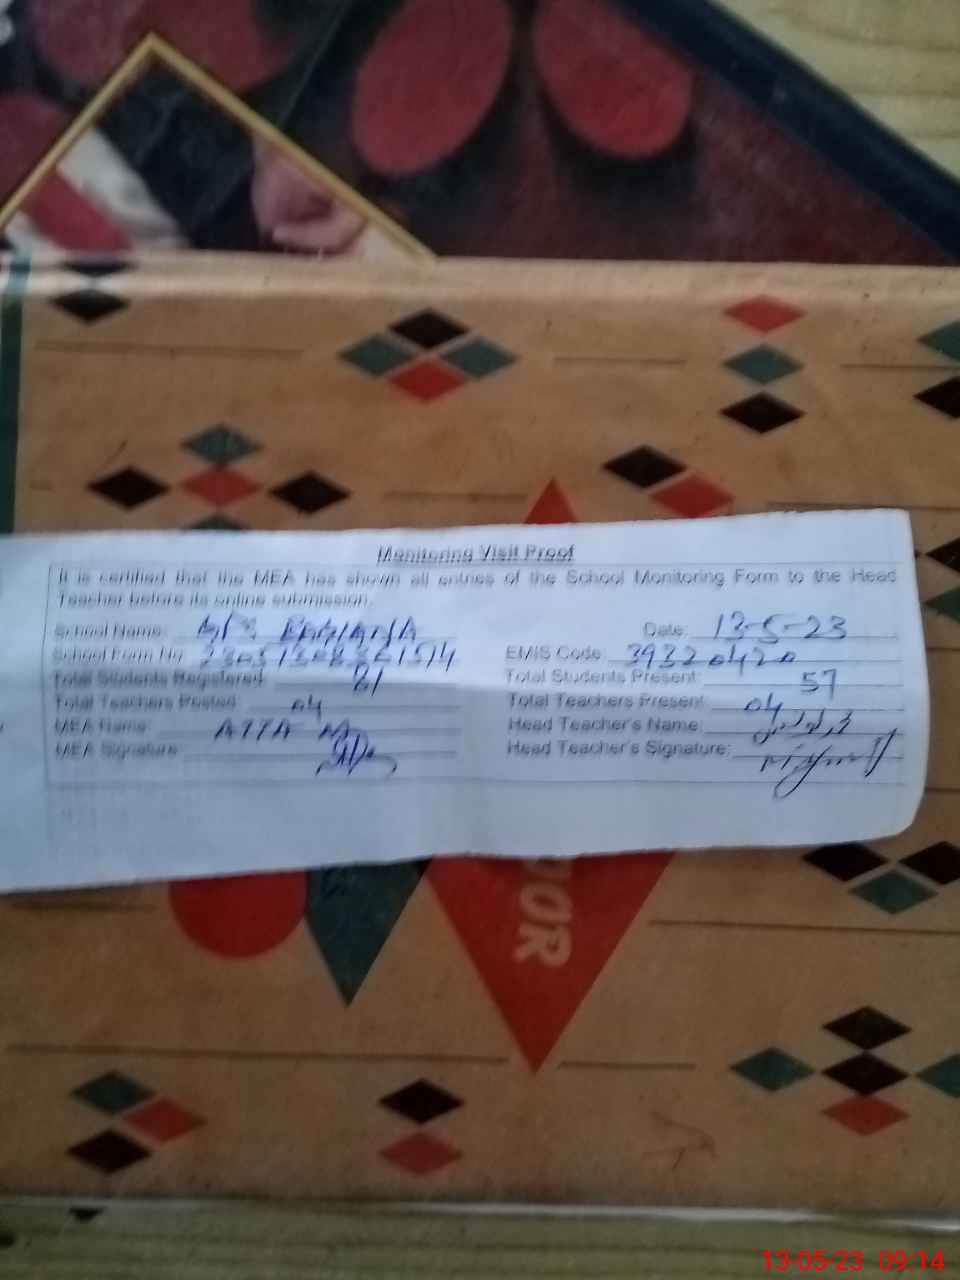 Monitoring Visit Proof
It is certified that the MEA has shown all entries of the School Monitoring Form to the Head
Teacher before its online submission.
School Name: GPS Date: 13-5-23
School Form No: EMIS Code: 39320420
Total Students Registered: 61 Total Students Present: 57
Total Teachers Posted: 04 Total Teachers Present: 04
MEA Name: ATTA M Head Teacher's Name:
MEA Signature: Head Teacher's Signature:
13-05-23 09:14